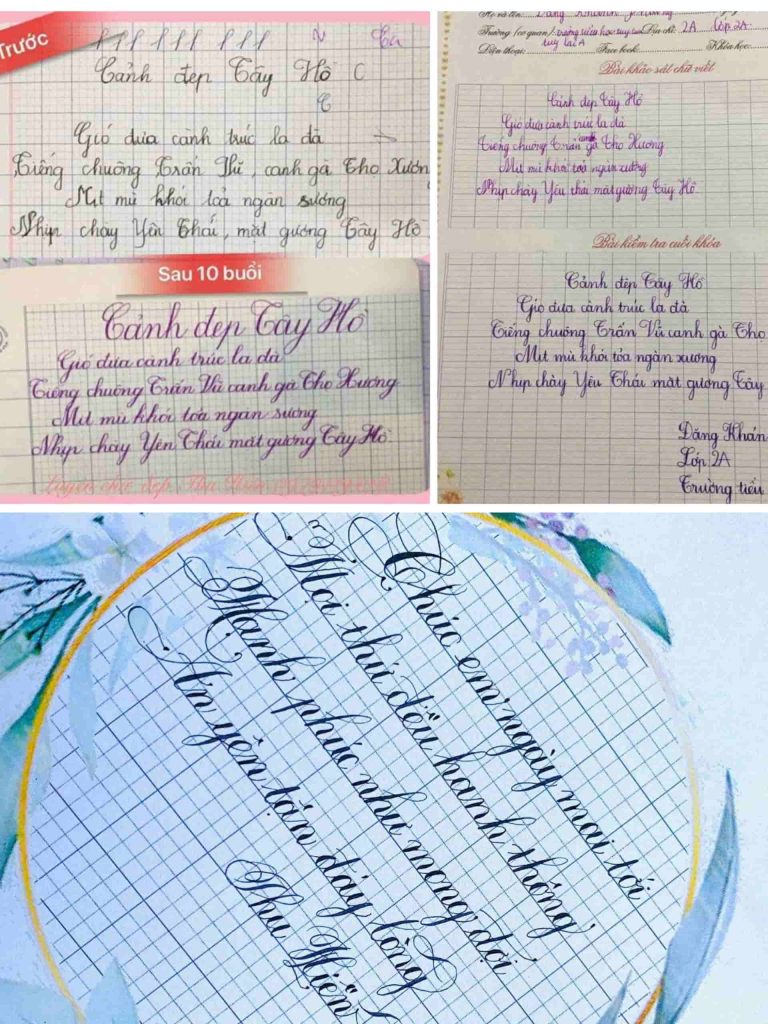 Trước
Cảnh đẹp Tây Hồ C
Gió đưa cành trúc la đà
Tiếng chuông Trấn Vũ, canh gà Thọ Xương
Mịt mù khói toả ngàn sương
Nhịp chày Yên Thái, mặt gương Tây Hồ
Sau 10 buổi
Cảnh đẹp Tây Hồ
Gió đưa cành trúc la đà
Tiếng chuông Trấn Vũ canh gà Thọ Xương
Mịt mù khói toả ngàn sương
Nhịp chày Yên Thái mặt gương Tây Hồ
Họ và tên: Đặng Khánh
Trường (cơ quan): Địa chỉ: 2A Lớp 2A
Điện thoại: Face book: Khóa học:
Bài khảo sát chữ viết
Cảnh đẹp Tây Hồ
Gió đưa cành trúc la đà
Tiếng chuông Trấn canh gà Thọ Xương
Mịt mù khói toả ngàn xương
Nhịp chày Yêu thái mặt gương Tây Hồ
Bài kiểm tra cuối khóa
Cảnh đẹp Tây Hồ
Gió đưa cành trúc la đà
Tiếng chuông Trấn Vũ canh gà Thọ
Mịt mù khói tỏa ngàn xương
Nhịp chày Yêu Thái mặt gương Tây
Đăng Khán
Lớp 2A
Trường tiểu
Chúc em ngày mai tới
Mọi thứ đều hanh thông
Hạnh phúc như mong đợi
An yên tận đáy lòng
Thu Hiền